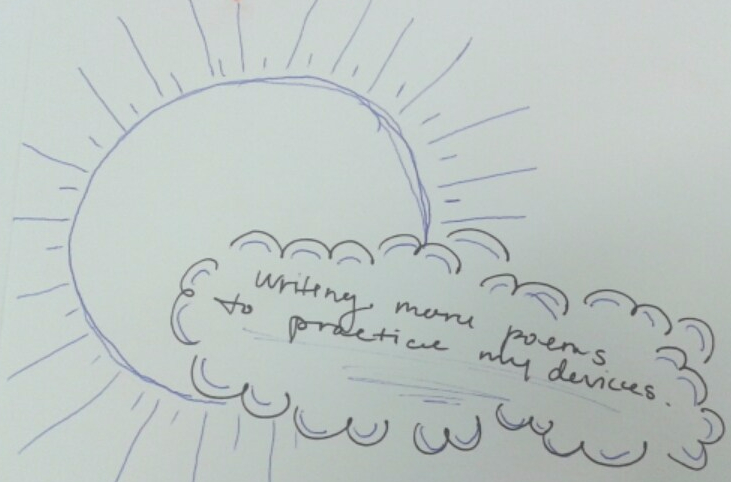 Writing more poems
to practice my devices.